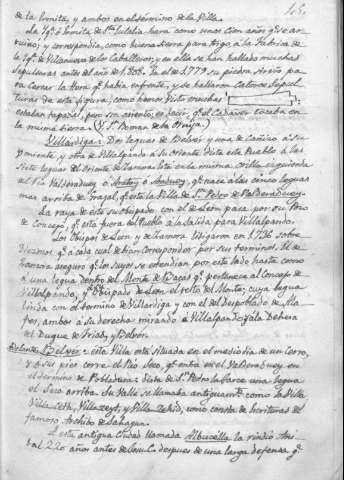 de la Ermita, y ambos en el término de la Villa.
La Yg.ª ó Ermita de S.ta Eulalia hara como unos cien años q.e se ar-
ruinó; y correspondia, como buena tierra para trigo á la Fabrica de
la Yg.ª de Villanueva de los Caballeros; y en ella se han hallado muchas
Sepulturas antes del año de 1808. En el de 1779 su piedra
para la torre q.e habia enfrente, y se hallaron Sepul-
turas de esta figura; como hemos visto muchas
estaban tapadas, pero sin es decir, q.e el Cadaver tocaba en
la misma tierra (Y S.n Roman de la Ornija.
Villardiga: Dos leguas de Belver, y una de camino á su
Poniente, y otra de Villalpando á su Oriente. Dista este Pueblo á las
Siete leguas del Oriente de Zamora. Esta en la misma orilla izquierda
del Rio Valderaduey ó Aratoy ó Araduey, q.e nace á las cinco leguas
mas arriba de Grajal, q.e está la Villa de S.n Pedro de Valderaduey.
La raya de este su obispado con el de Leon pasa por su
de Concejo, q.e está fuera del Pueblo á la salida para Villalpando.
Los Obispos de Leon y de Zamora litigaron en 1736 sobre
Diezmos q.e á cada cual debian corresponder por sus terminos. El de
Zamora aseguro q.e los suyos se estendian por este lado hasta como
á una legua dentro del Monte de q.e pertenece al Concejo de
Villalpando, y Obispado de Leon el resto del Monte; cuya legua
linda con el termino de Villardiga y con el del Despoblado de Ala-
fes, ambos á su derecha mirando á Villalpando y á la Dehesa
del Duque de Frias, y Belver.
Belver: esta Villa está situada en el mediodia de un Cerro,
y á sus pies corre el Rio Seco, q.e entra en el Valderaduey en
el término de Pobladura: dista de S.n Pedro la Tarce una legua
el Seco arriba. Su Valle se llamaba antiguam.te como la Villa
Villa Ceth, Villazeyt, y Villa Zehid, como consta de Escrituras del
famoso Archivo de Sahagun.
A esta antigua Ciudad llamada Albucella la rindió Ani-
bal 220 años antes de Jesu C. despues de una larga defensa q.e